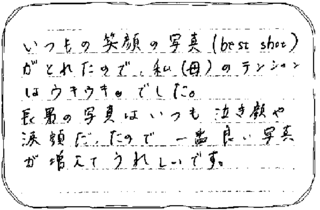 いつもの笑顔の写真(best shot)
がとれたので、私(母)のテンション
はウキウキ。でした。
長男の写真はいつも泣き顔や
涙顔だったので一番良い写真
が増えてうれしいです。